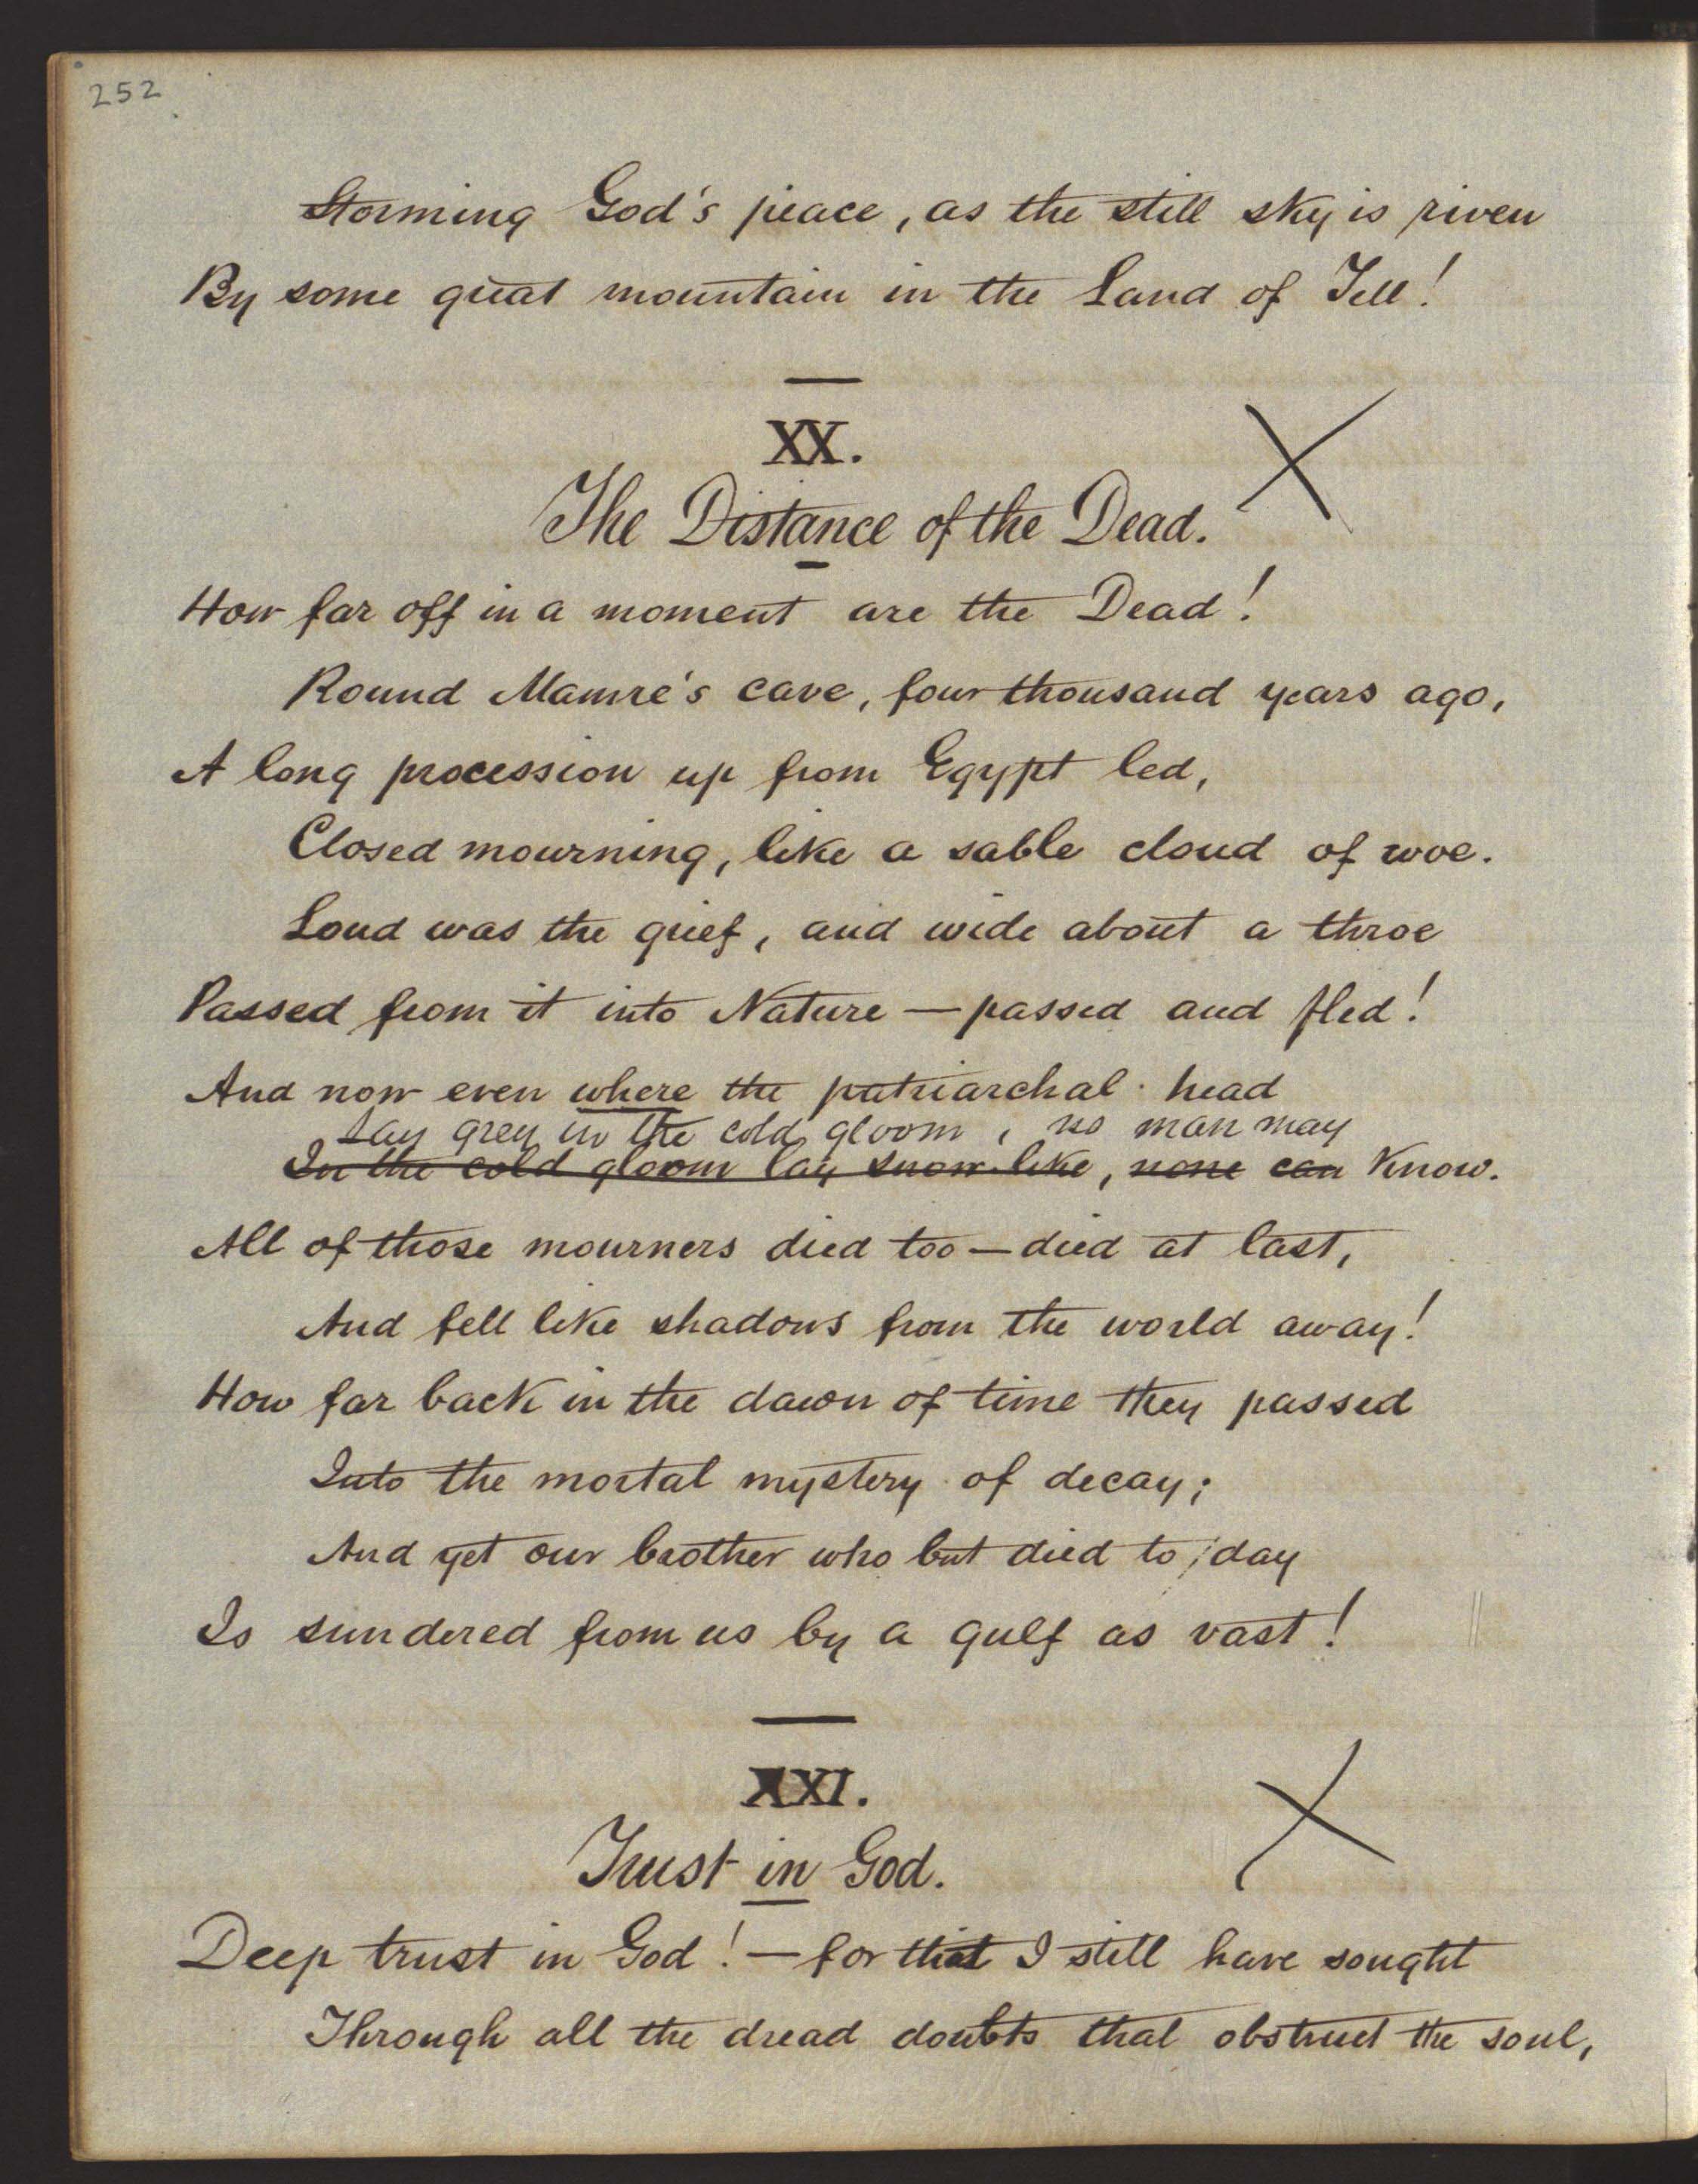 252
Storming God's peace, as the still sky is riven
By some great mountain in the Land of Tell!
XX.
The Distance of the Dead.
How far off in a moment are the Dead!
Round Mamre's cave, four thousand years ago,
A long procession up from Egypt led,
Closed mourning, like a sable cloud of woe.
Loud was the grief, and wide about a throe
Passed from it into Nature — passed and fled!
And now even where the patriarchal head
Lay grey in the cold gloom, no man may
In the cold gloom lay snow-like, none can Know.
All of those mourners died too — died at last,
And fell like shadows from the world away!
How far back in the dawn of time they passed
Into the mortal mystery of decay;
And yet our brother who but died to day
Is sundered from us by a gulf as vast!
XXI.
Trust in God.
Deep trust in God! — for that I still have sought
Through all the dread doubts that obstruct the soul,